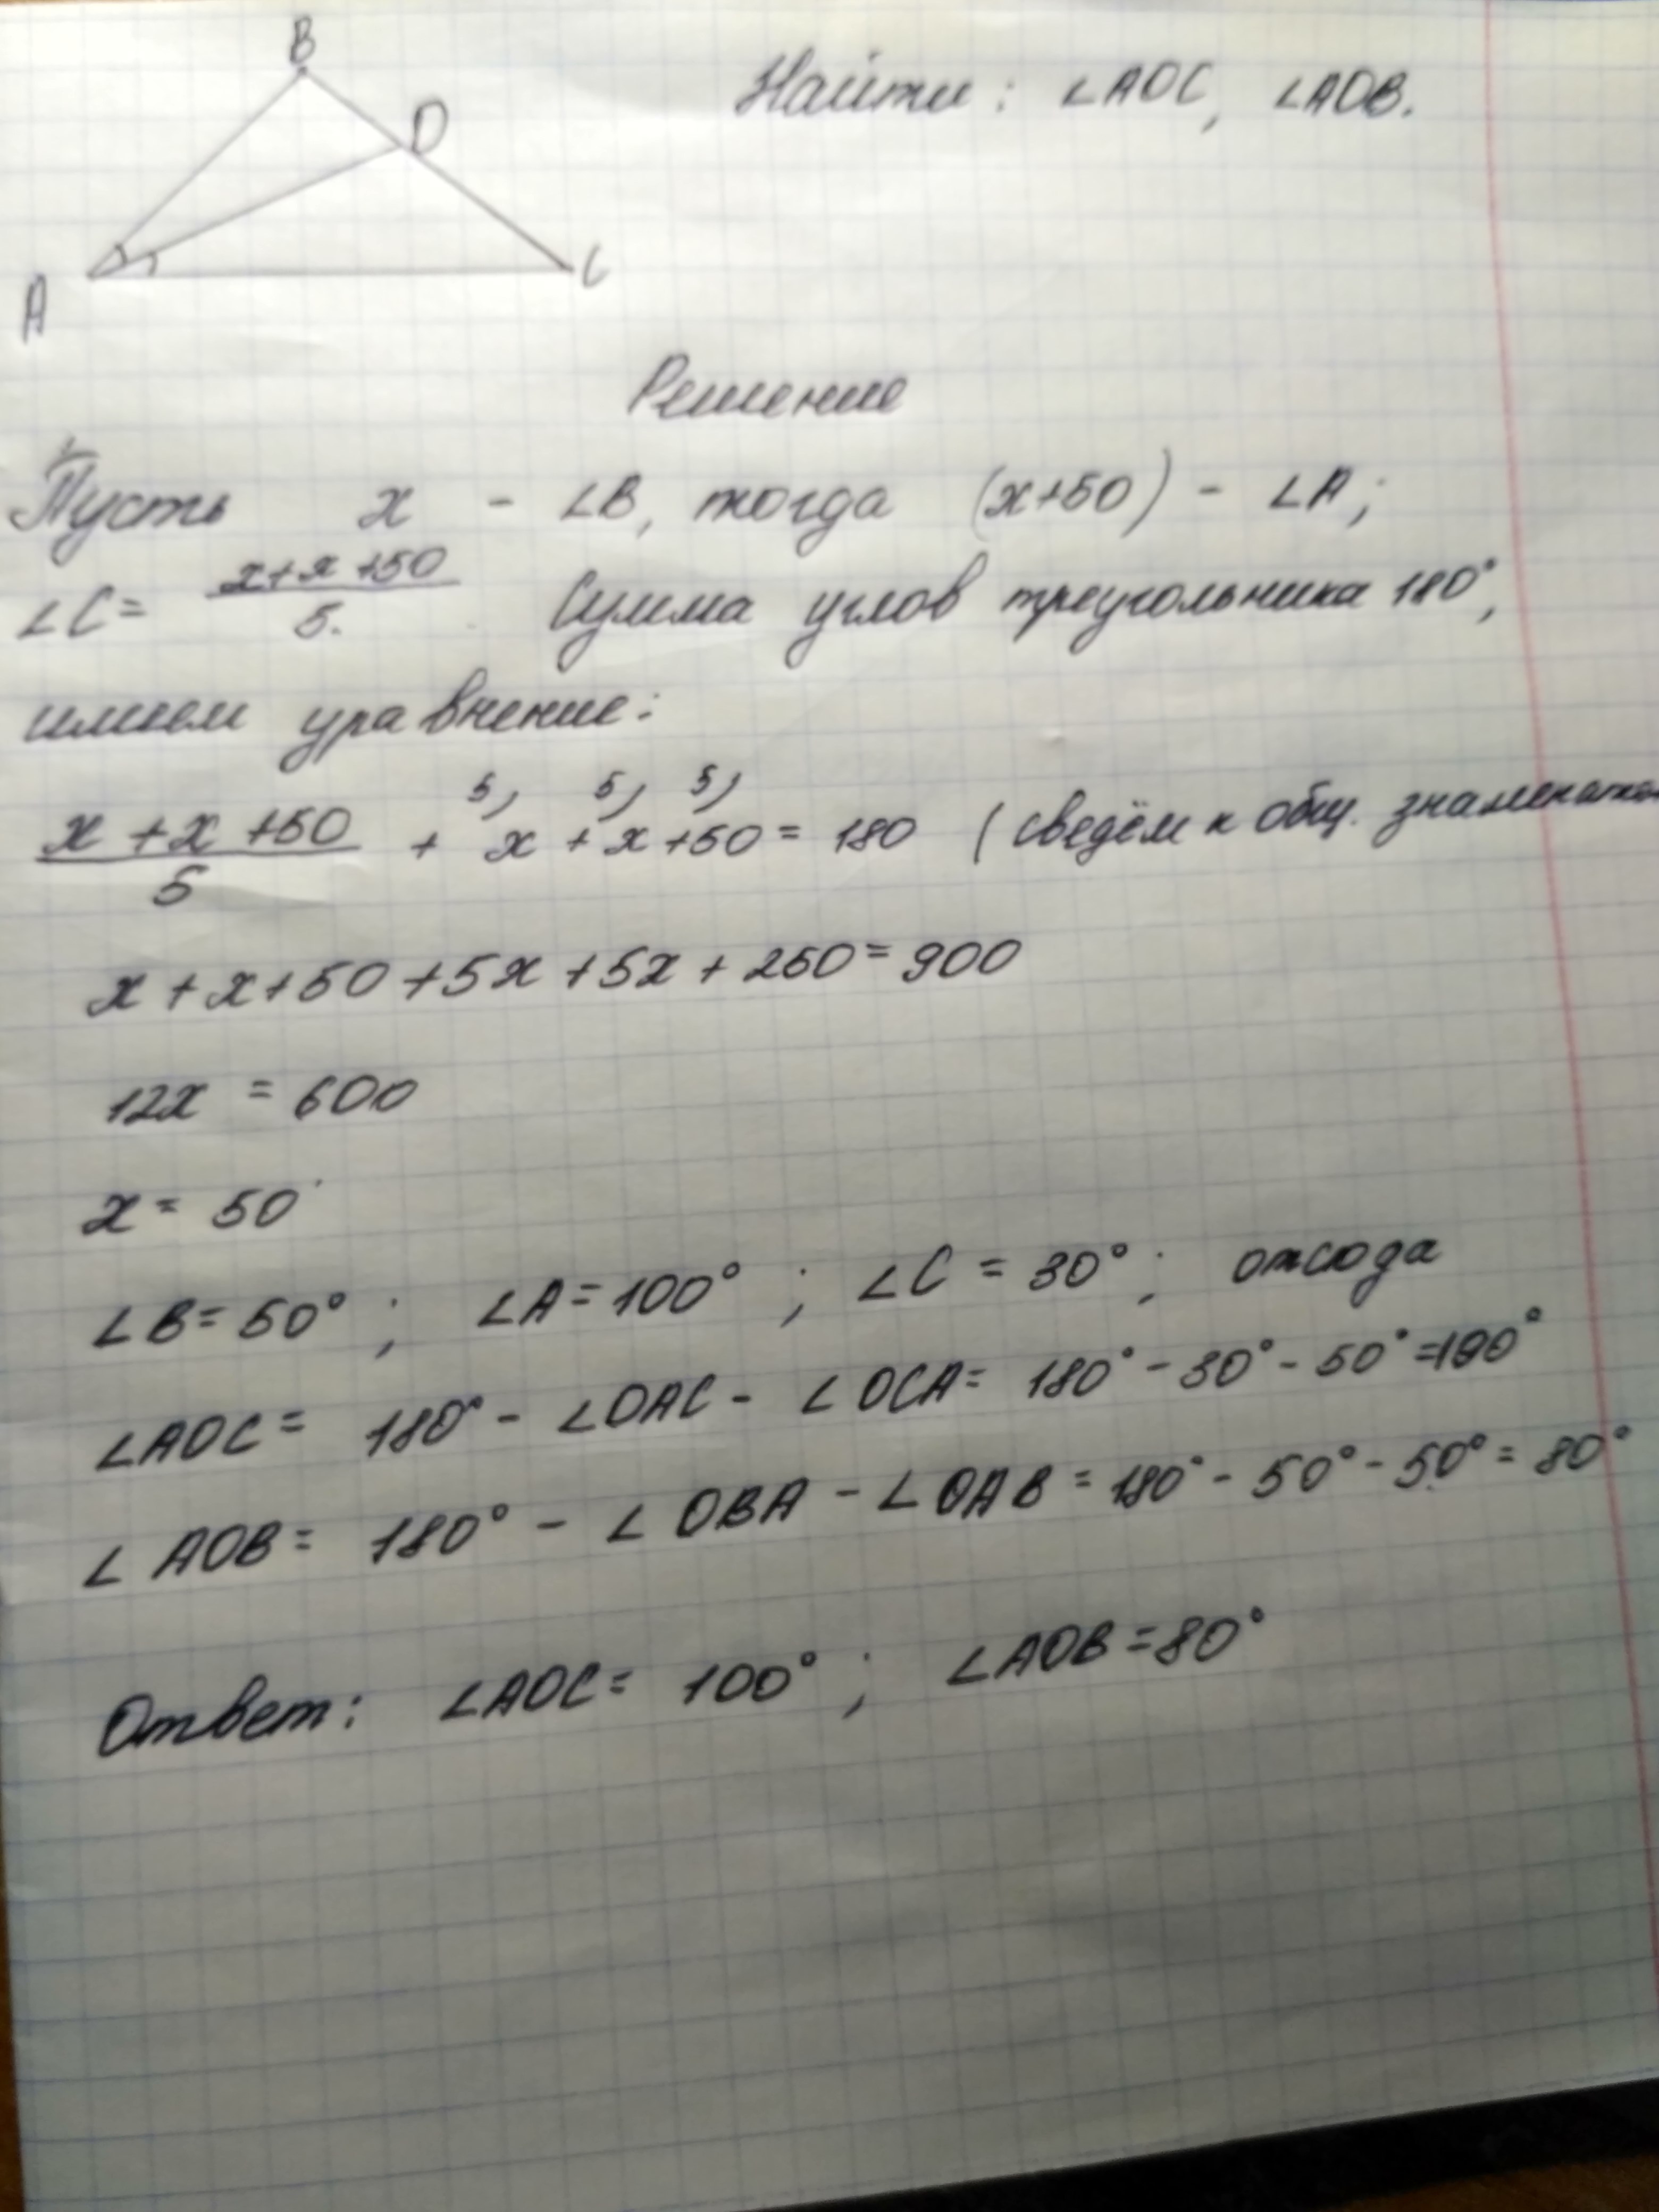 B
D
A
C
Найти: ∠ADC, ∠ADB.
Решение
Пусть x - ∠B, тогда (x+50) - ∠A;
∠C = (x+x+50)/5. Сумма углов треугольника 180°,
имеем уравнение:
5) 5) 5)
(x+x+50)/5 + x + x +50 = 180 (сведём к общ.
x + x+50 +5x +5x + 250 = 900
12x = 600
x = 50
∠B = 50° ; ∠A = 100° ; ∠C = 30° ; отсюда
∠ADC = 180° - ∠DAC - ∠DCA = 180° - 30° - 50° = 100°
∠ADB = 180° - ∠DBA - ∠DAB = 180° - 50° - 50° = 80°
Ответ: ∠ADC = 100° ; ∠ADB = 80°